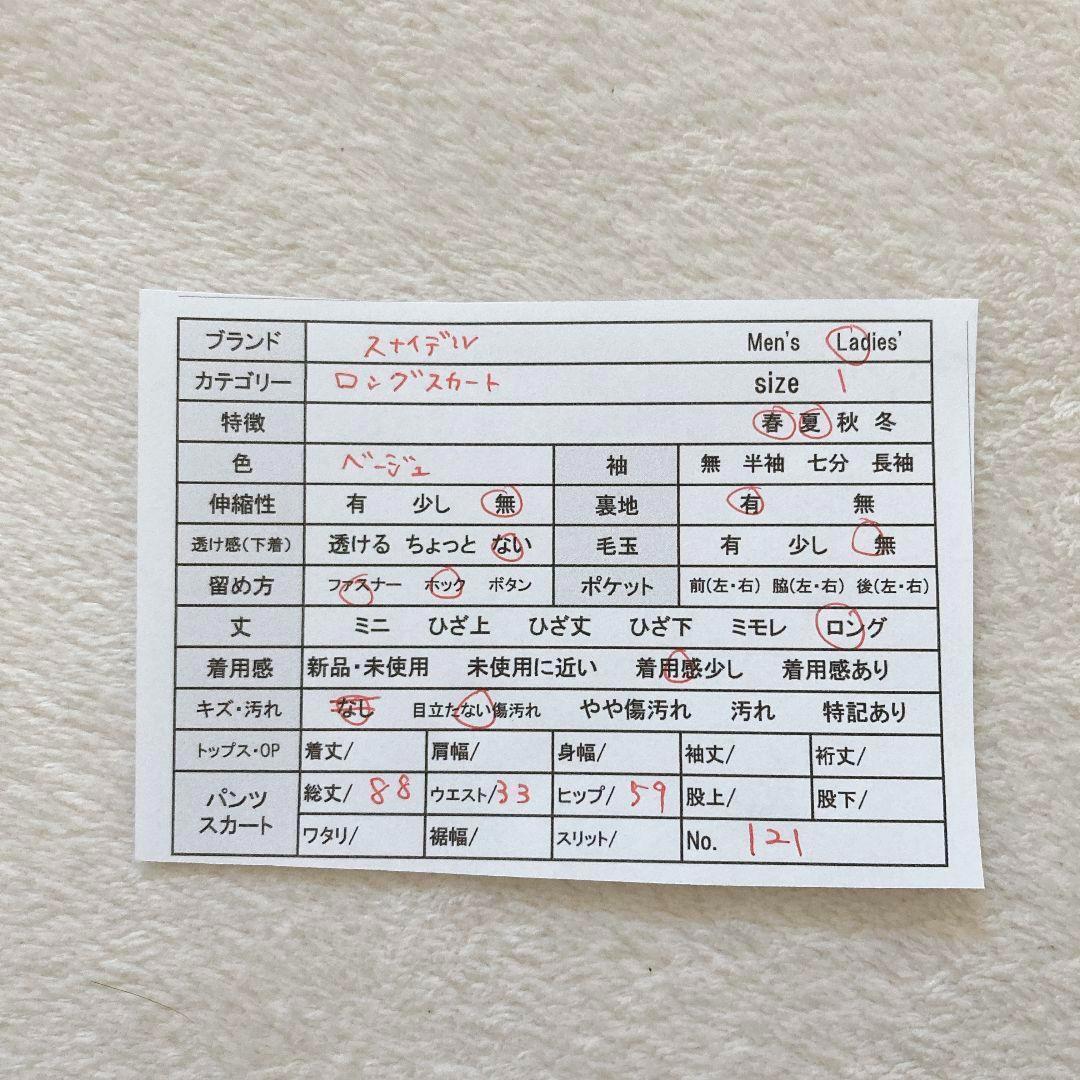 ブランド スナイデル Men's Ladies'
カテゴリー ロングスカート size 1
特徴 春 夏 秋 冬
色 ベージュ 袖 無 半袖 七分 長袖
伸縮性 有 少し 無 裏地 有 無
透け感(下着) 透ける ちょっと ない 毛玉 有 少し 無
留め方 ファスナー ホック ボタン ポケット 前(左・右) 脇(左・右) 後(左・右)
丈 ミニ ひざ上 ひざ丈 ひざ下 ミモレ ロング
着用感 新品・未使用 未使用に近い 着用感少し 着用感あり
キズ・汚れ なし 目立たない傷汚れ やや傷汚れ 汚れ 特記あり
トップス・OP 着丈/ 肩幅/ 身幅/ 袖丈/ 裄丈/
パンツ スカート 総丈/ 88 ウエスト/33 ヒップ/ 59 股上/ 股下/
ワタリ/ 裾幅/ スリット/ No. 121